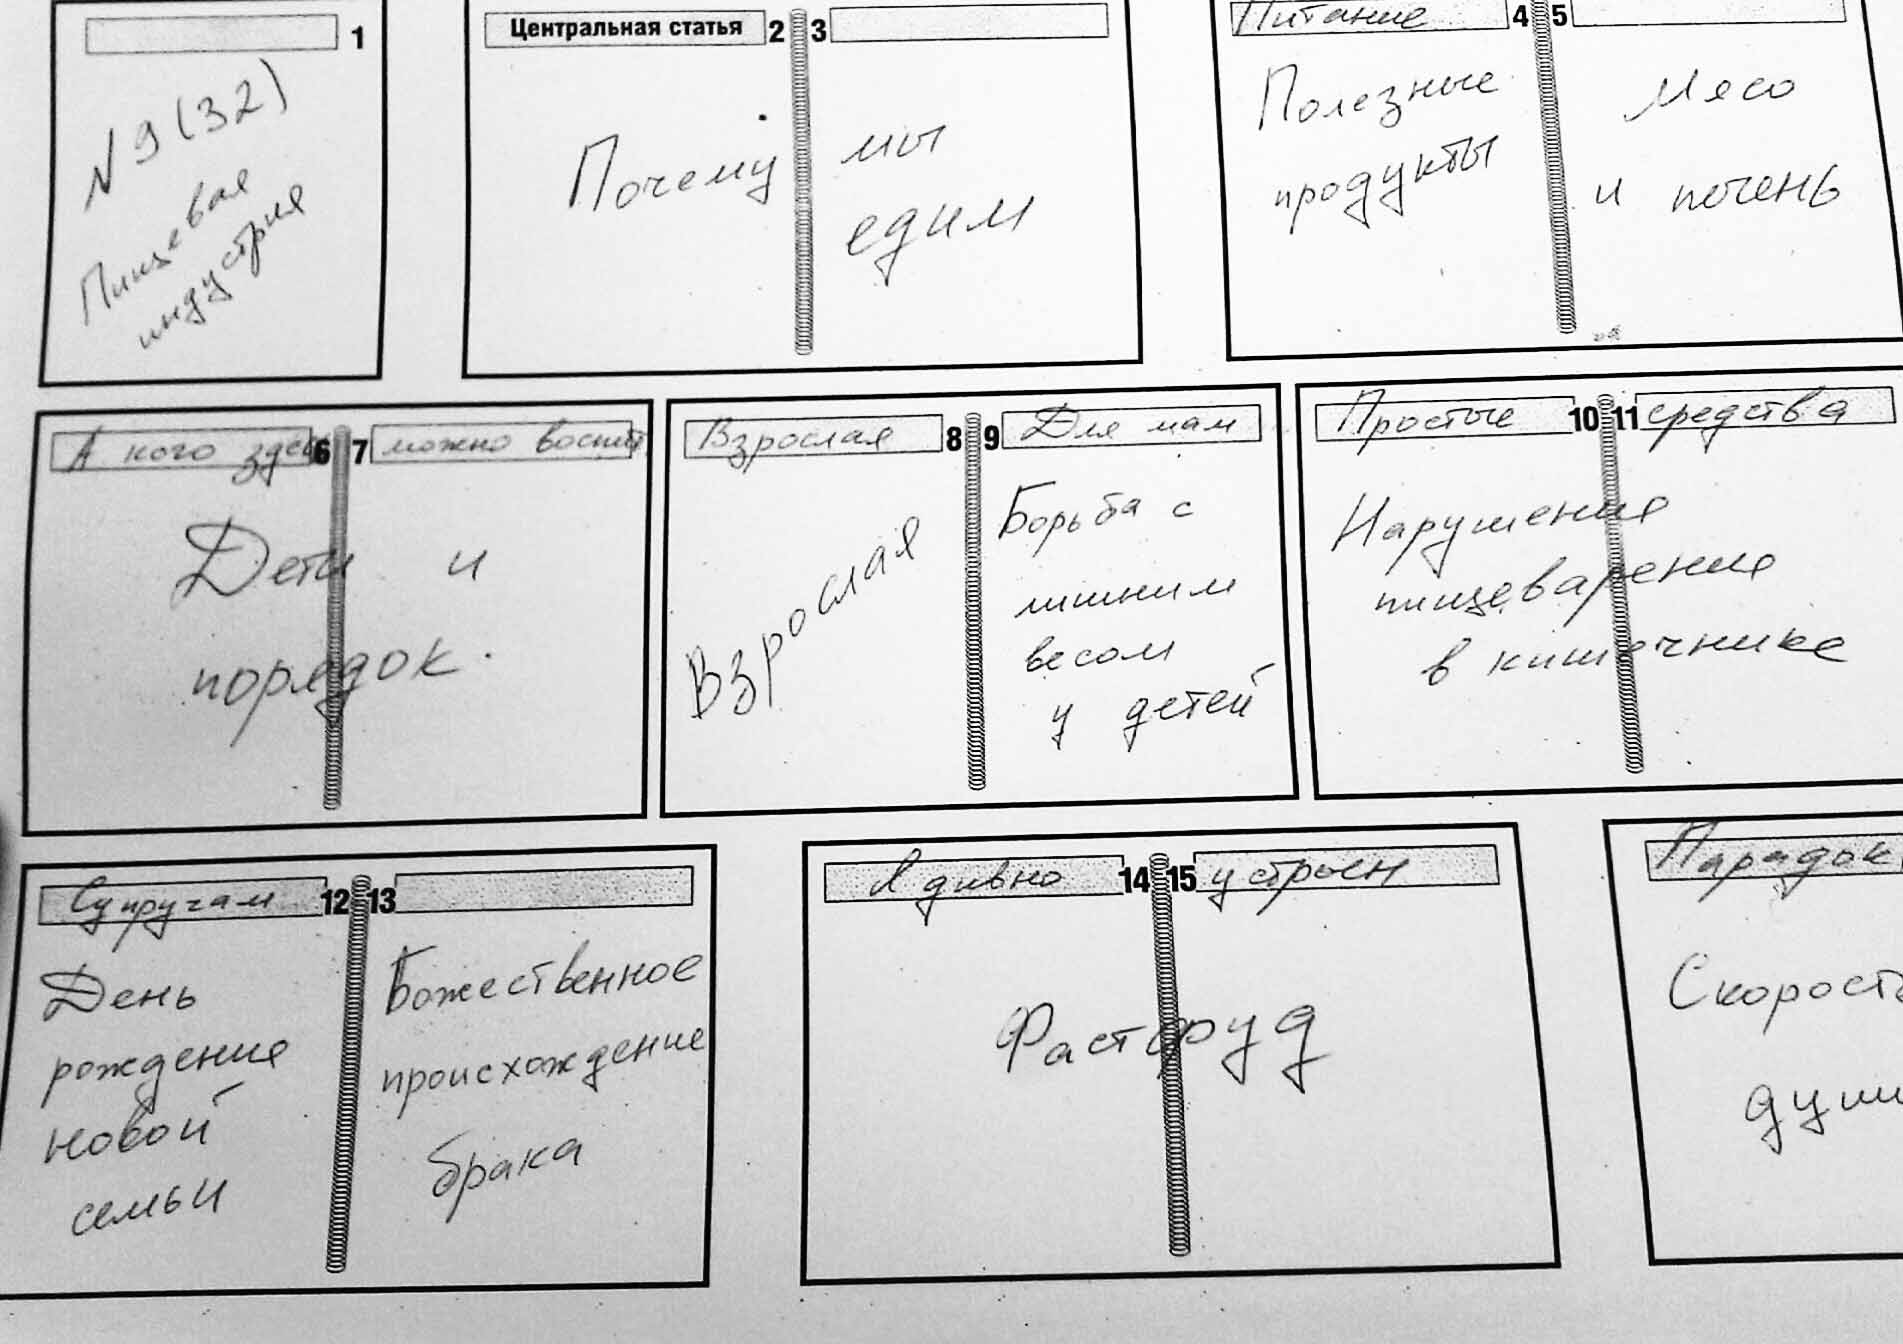 1
N 9 (32)
Пищевая
индустрия
Центральная статья 2 3
Почему мы
едим
Питание 4 5
Полезные Мясо
продукты и печень
А кого здесь 6 7 можно воспит
Дети и
порядок.
Взрослая 8 9 Для мам
Взрослая
Борьба с
лишним
весом
у детей
Простые 10 11 средства
Нарушение
пищеварение
в кишечнике
Супругам 12 13
День
рождение
новой
семьи
Божественное
происхождение
брака
Я дивно 14 15 устроен
Фастфуд
Парадок
Скорость
души